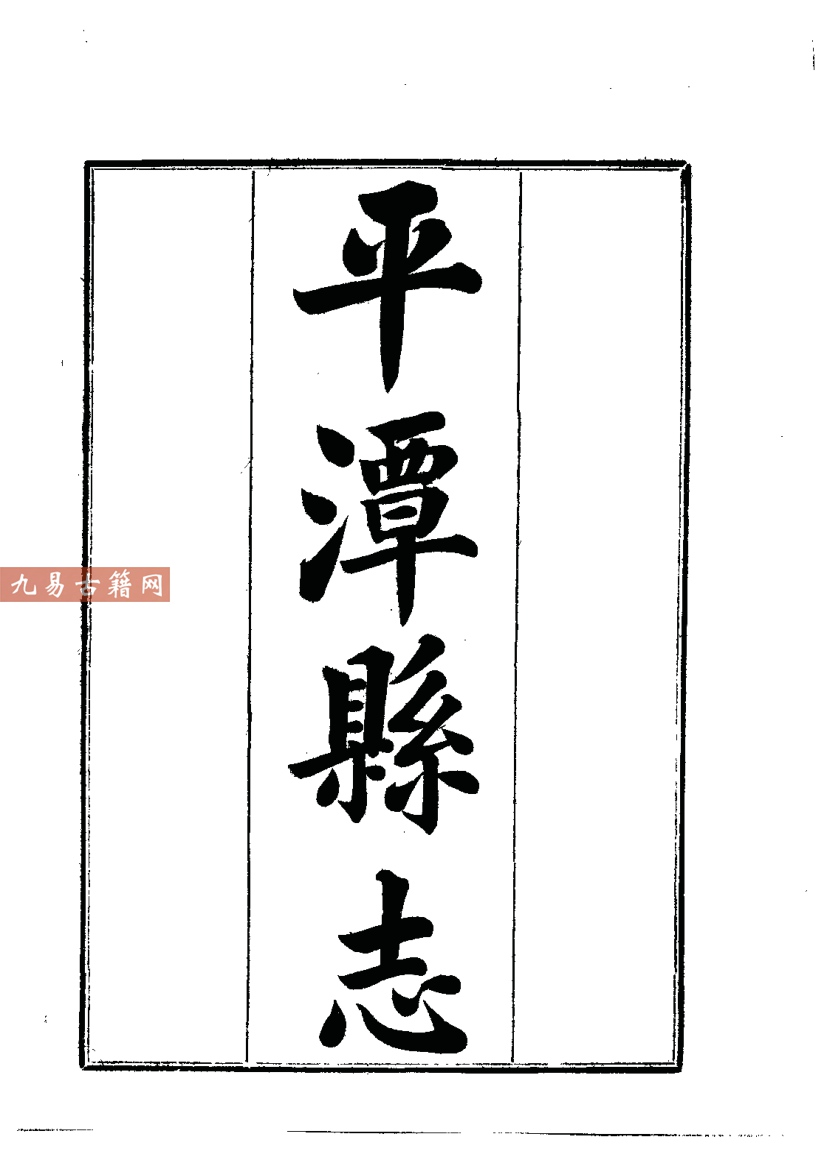 平潭縣志
九易古籍网